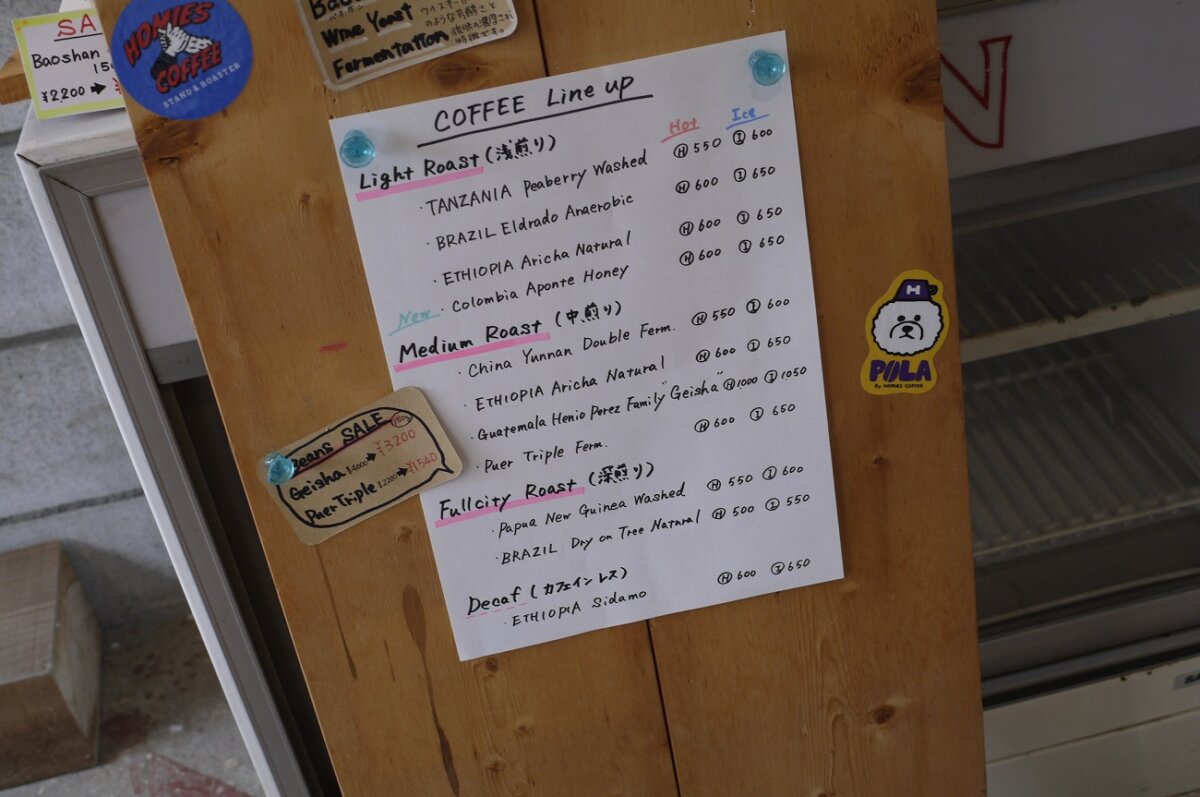 SA
Baoshan
150
¥2,200 → ¥
HOMIES
COFFEE
STAND & ROASTER
Wine Yeast
Fermentation
COFFEE Line up
Hot Ice
Light Roast (浅煎り)
・TANZANIA Peaberry Washed Ⓗ 550 Ⓘ 600
・BRAZIL Eldrado Anaerobic Ⓗ 600 Ⓘ 650
・ETHIOPIA Aricha Natural Ⓗ 600 Ⓘ 650
New ・Colombia Aponte Honey Ⓗ 600 Ⓘ 650
Medium Roast (中煎り)
・China Yunnan Double Ferm. Ⓗ 550 Ⓘ 600
・ETHIOPIA Aricha Natural Ⓗ 600 Ⓘ 650
・Guatemala Henio Perez Family "Geisha" Ⓗ 1000 Ⓘ 1050
・Puer Triple Ferm. Ⓗ 600 Ⓘ 650
Fullcity Roast (深煎り)
・Papua New Guinea Washed Ⓗ 550 Ⓘ 600
・BRAZIL Dry on Tree Natural Ⓗ 500 Ⓘ 550
Decaf (カフェインレス)
・ETHIOPIA Sidamo Ⓗ 600 Ⓘ 650
Beans SALE 150g
Geisha ¥4000 → ¥3200
Puer Triple ¥2200 → ¥1540
H
POLA
By HOMIES COFFEE
N